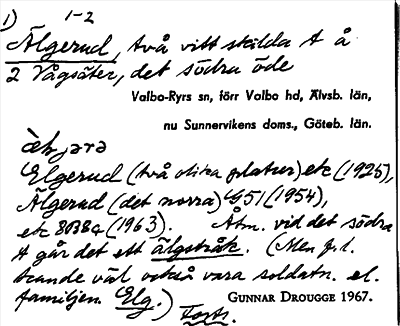 1) 1-2
Älgerud, två vitt skilda t å
2 Vågsäter, det södra öde
Valbo-Ryrs sn, förr Valbo hd, Älvsb. län,
nu Sunnervikens doms., Göteb. län.
Elgerud (två olika platser) ek (1925),
Älgerud (det norra) G51 (1954),
ek 8B8a (1963). Åtm. vid det södra
t går det ett älgstråk. (Men f.l.
kunde väl också vara soldatn. el.
familjen. Elg.) Forts.
GUNNAR DROUGGE 1967.